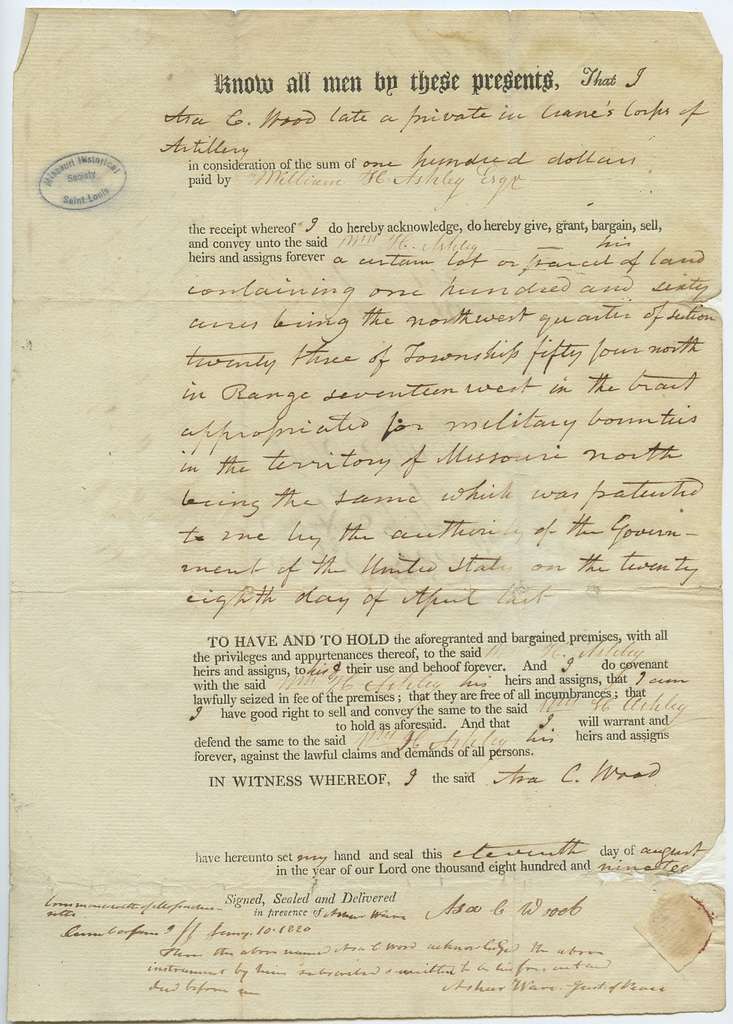 Know all men by these presents, That I
Asa C. Wood late a private in Crane's Corps of
Artillery
in consideration of the sum of one hundred dollars
paid by William H. Ashley Esqr
Missouri Historical
Society
Saint-Louis
the receipt whereof I do hereby acknowledge, do hereby give, grant, bargain, sell,
and convey unto the said Wm H. Ashley his
heirs and assigns forever a certain lot or parcel of land
containing one hundred and sixty
acres being the northwest quarter of section
twenty three of Township fifty four north
in Range seventeen west in the tract
appropriated for military bounties
in the territory of Missouri north
being the same which was patented
to me by the authority of the Govern-
ment of the United States on the twenty
eighth day of April last
TO HAVE AND TO HOLD the aforegranted and bargained premises, with all
the privileges and appurtenances thereof, to the said W H. Ashley
heirs and assigns, to his their use and behoof forever. And I do covenant
with the said Wm H Ashley his heirs and assigns, that I am
lawfully seized in fee of the premises; that they are free of all incumbrances; that
I have good right to sell and convey the same to the said Wm H Ashley
to hold as aforesaid. And that I will warrant and
defend the same to the said Wm H Ashley his heirs and assigns
forever, against the lawful claims and demands of all persons.
IN WITNESS WHEREOF, I the said Asa C. Wood
have hereunto set my hand and seal this eleventh day of august
in the year of our Lord one thousand eight hundred and nineteen
Signed, Sealed and Delivered
in presence of Ashur Ware Asa C Wood
Commonwealth of Massachu-
setts
Cumberland ss Jany. 10. 1820
Then the above named Asa C Wood acknowledged the above
instrument by him subscribed & written to be his free act and
deed before me
Ashur Ware Just of Peace